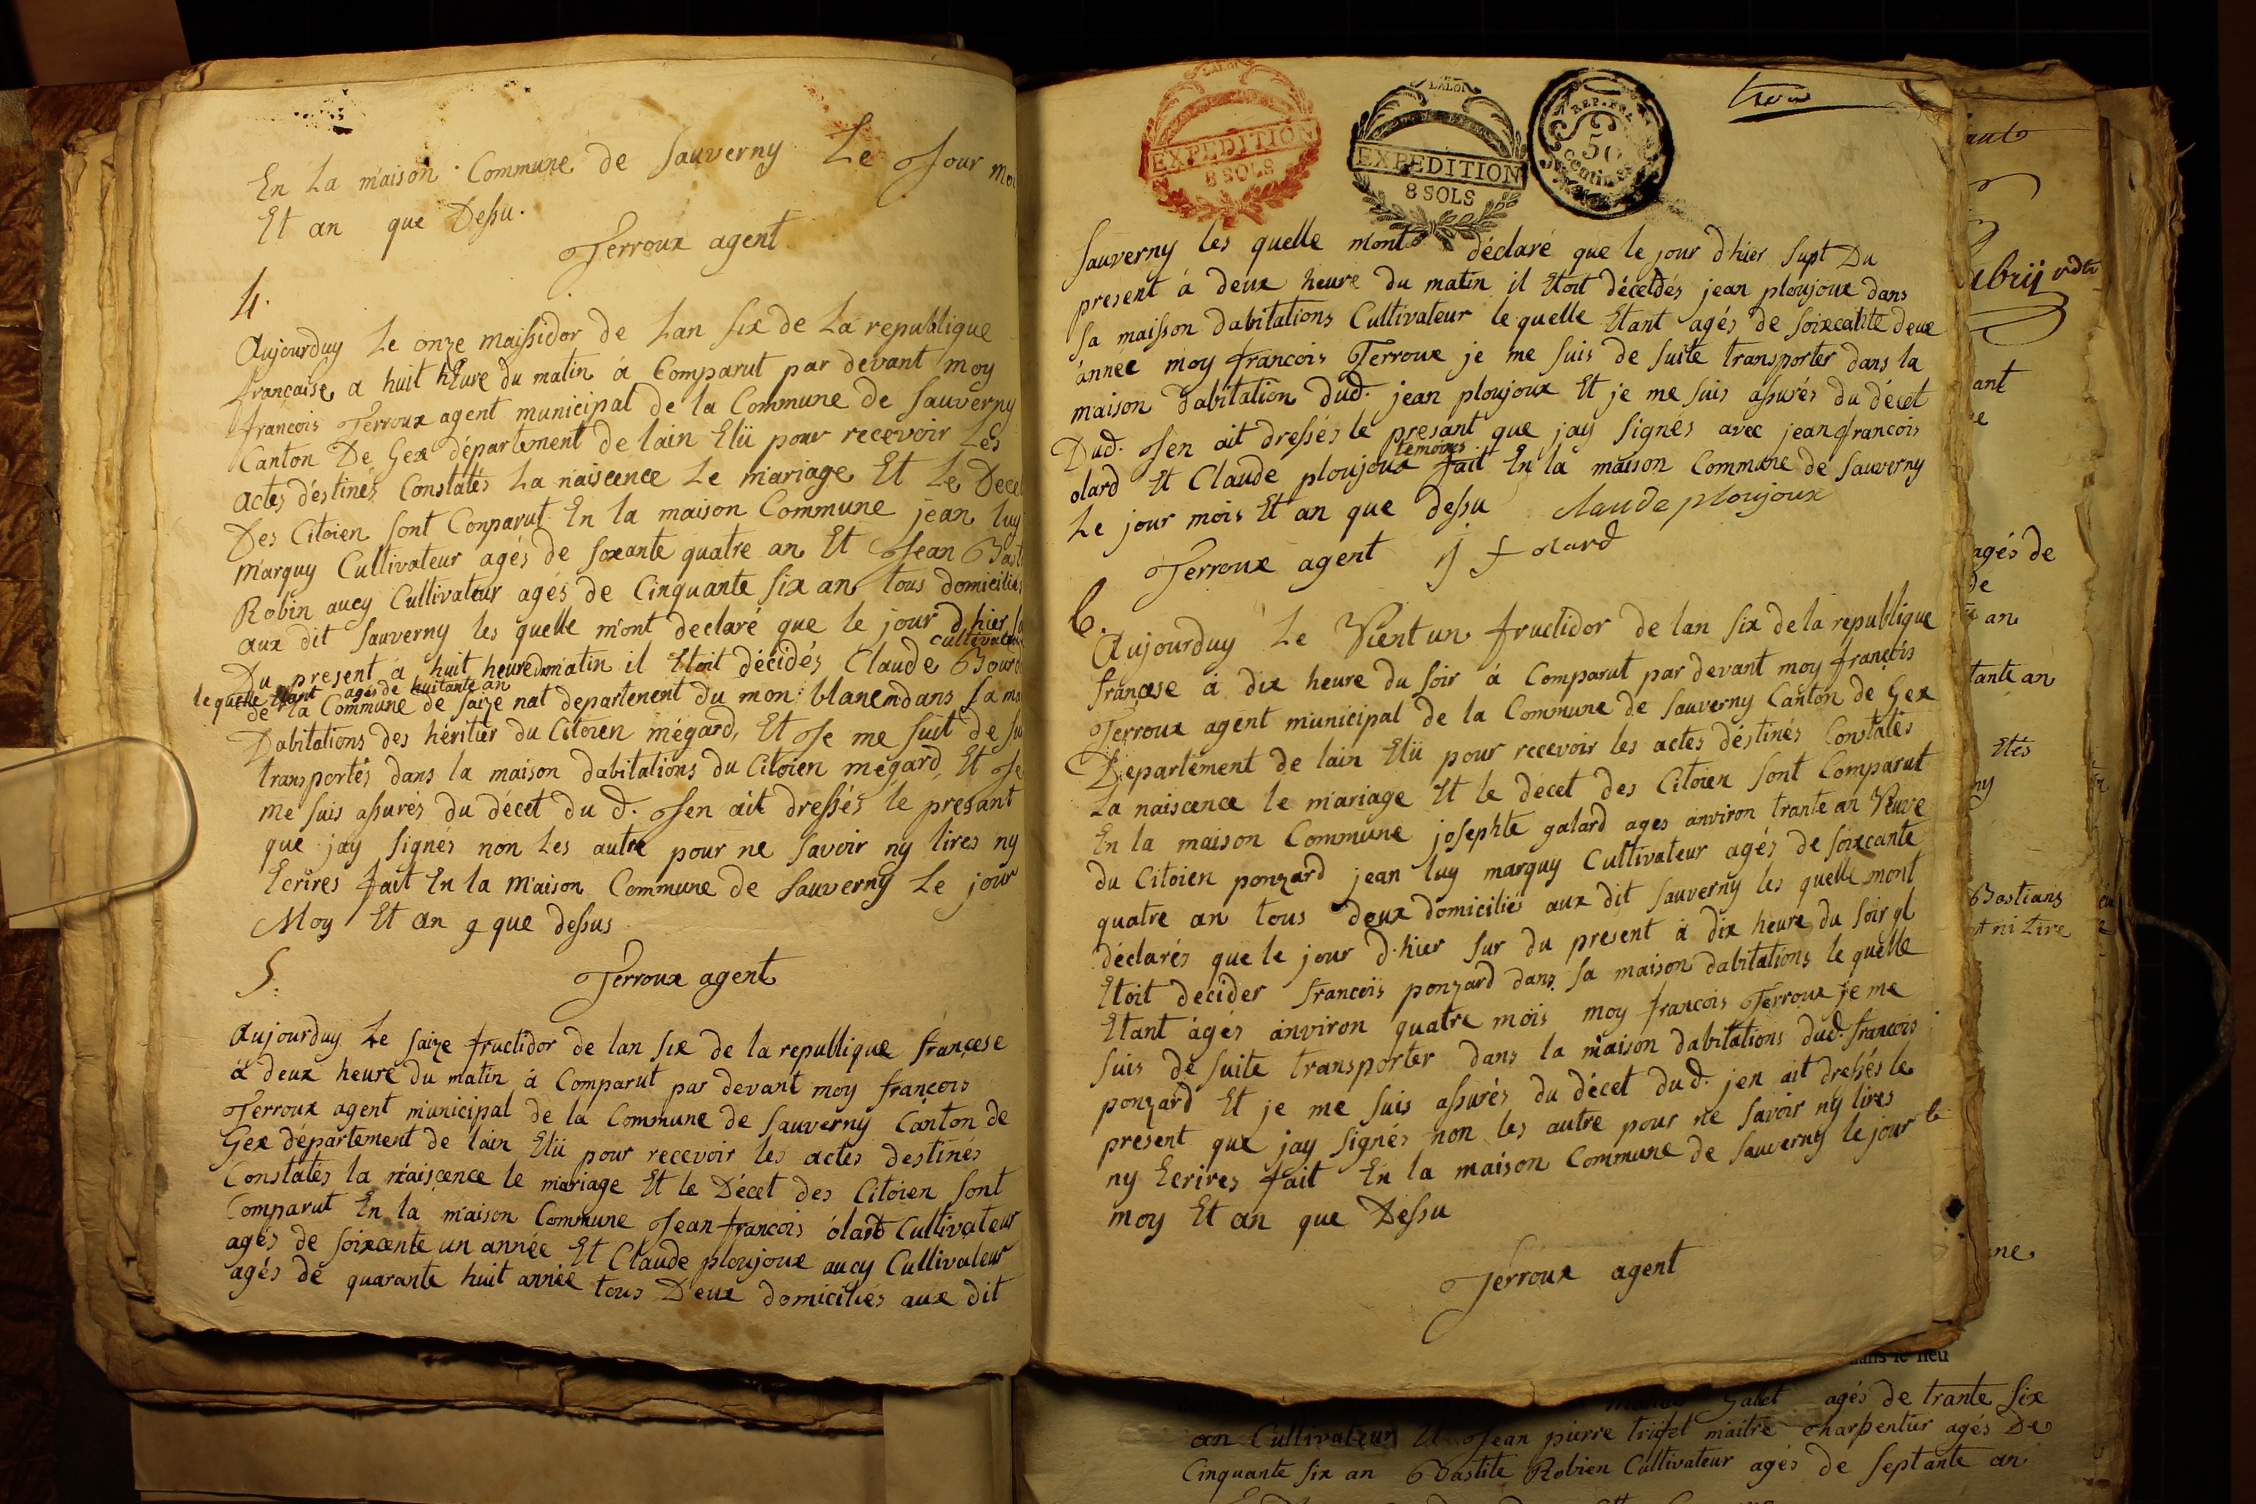 En La maison Commune de Sauverny Le Jour
Et an que Dessu.
Terroux agent
4.
Aujourduy Le onze maissidor de Lan six de La republique
française a huit hEure du matin á Comparut par devant moy
françois Terroux agent municipal de la Commune de Sauverny
Canton De Gex département de lain Elü pour recevoir Les
actes déstinés Constatés La naiscence Le mariage Et Le Decet
Des Citoien sont Conparut En la maison Commune jean luy
marquy Cultivateur agés de soxante quatre an Et Jean Bast
Robin aucy Cultivateur agés de Cinquante six an tous domiciliés
aux dit Sauverny les quelle m'ont declaré que le jour d'hier
cultivateur
Du present a huit heure du matin il Etoit décidés Claude Bourd
le quelle Etant agés de huitante an
de la Commune de saize nat departement du mon: blanc dans sa
Dabitations des héritier du Citoien mégard, Et Je me suit de
transportés dans la maison dabitations du Citoien mégard, Et Je
me suis assurés du décet du d. Jen ait dressés le presant
que jay signés non Les autre pour ne savoir ny lires ny
Ecrires fait En la maison Commune de Sauverny Le jour
Moy Et an q que dessus
Terroux agent
5.
Aujourduy Le saize fructidor de lan six de la republique françese
à deux heure du matin á Comparut par devant moy françois
Terroux agent municipal de la Commune de Sauverny Canton de
Gex département de lain Elü pour recevoir les actes destinés
Constatés la naiscence le mariage Et le Décet des Citoien sont
Comparut En la maison Commune Jean françois olard Cultivateur
agés de soixcente un année Et Claude ploujoux aucy Cultivateur
agés de quarante huit année tous Deux domiciliés aux dit
LALOI
EXPEDITION
8 SOLS
LALOI
EXPEDITION
8 SOLS
REP. FRA
50
centimes
Sauverny les quelle mont déclaré que le jour dhier supt Du
present á deux heure du matin il Etoit décéldés jean ploujoux dans
sa maison dabitations Cultivateur le quelle Etant agés de soixcatite deux
année moy francois Terroux je me suis de suite transporter dans la
maison dabitation dud. jean ploujoux Et je me suis assurés du décet
Dud. Jen ait dressés le presant que jay signés avec jean francois
temoires
olard Et Claude ploujoux fait En la maison Commune de Sauverny
Le jour mois Et an que dessu claude ploujoux
Terroux agent j f olard
6.
Aujourduy Le Vient un fructidor de lan six de la republique
françese á dix heure du soir á Comparut par devant moy françois
Terroux agent municipal de la Commune de Sauverny Canton de Gex
Département de lain Elü pour recevoir les actes déstinés Constatés
La naiscence le mariage Et le décet des Citoien sont Comparut
En la maison Commune josephte galard ages anviron trante an Veuve
du Citoien ponzard jean luy marquy Cultivateur agés de soixcante
quatre an tous deux domiciliés aux dit Sauverny les quelle mont
déclarés que le jour d'hier sur du present á dix heure du soir yl
Etoit decider françois ponzard dans sa maison dabitations le quelle
Etant ágés anviron quatre mois moy françois Terroux je me
suis de suite transporter dans la maison dabitations dud. françois
ponzard Et je me suis assurés du décet dud. jen ait dressés le
present que jay signés non les autre pour ne savoir ny lires
ny Ecrires fait En la maison Commune de Sauverny le jour le
moy Et an que Dessu
Terroux agent
ant
agés de
de
an
tante an
Etés
ny
Bastians
ni Lire
ne
dans le lieu
Galet agés de trante six
an Cultivateur Et Jean pierre trüfet maitre charpentur agés De
Cinquante six an Bastite Robien Cultivateur agés de septante an